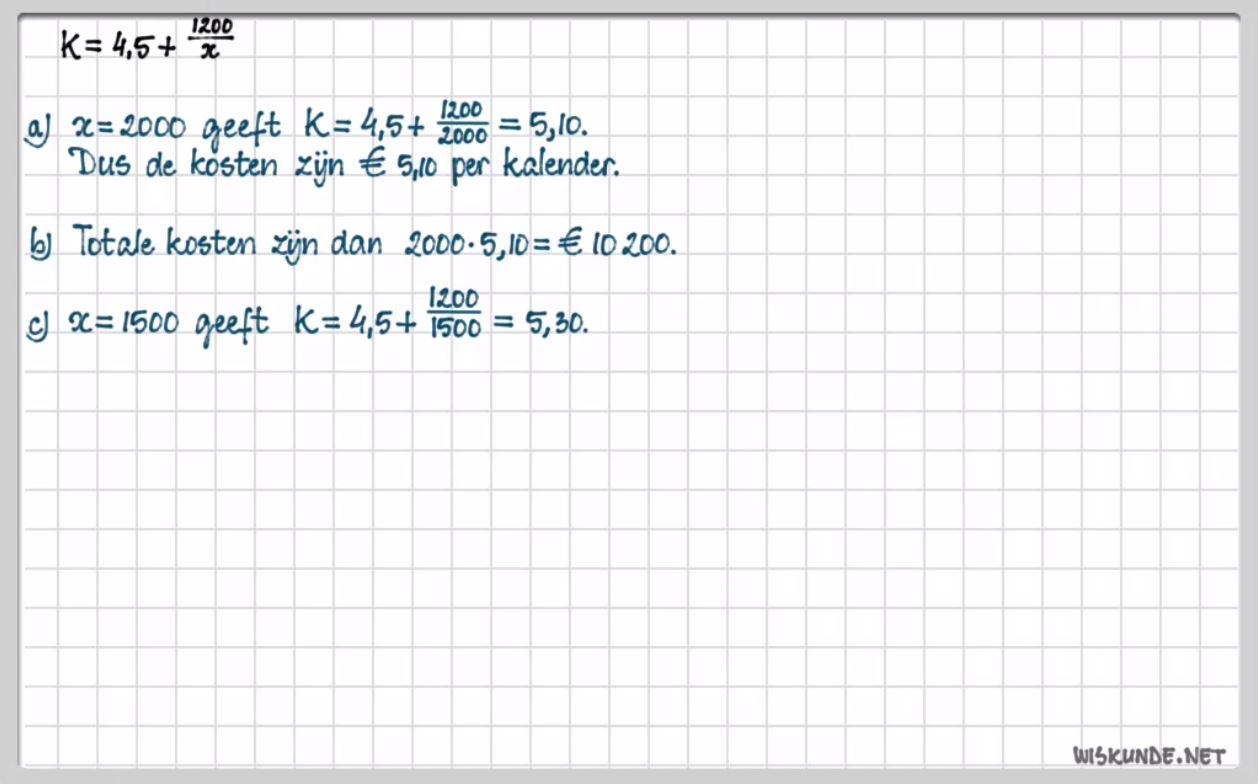 K = 4,5 + 1200/x
a) x = 2000 geeft K = 4,5 + 1200/2000 = 5,10.
Dus de kosten zijn € 5,10 per kalender.
b) Totale kosten zijn dan 2000 · 5,10 = € 10 200.
c) x = 1500 geeft K = 4,5 + 1200/1500 = 5,30.
WISKUNDE.NET